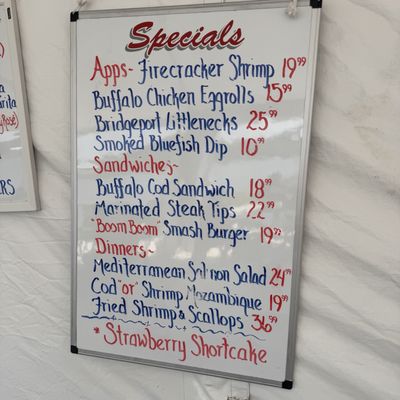 Specials
Apps- Firecracker Shrimp 19⁹⁹
Buffalo Chicken Eggrolls 15⁹⁹
Bridgeport Littlenecks 25⁹⁹
Smoked Bluefish Dip 10⁹⁹
Sandwiches-
Buffalo Cod Sandwich 18⁹⁹
Marinated Steak Tips 22⁹⁹
"Boom Boom" Smash Burger 19⁹⁹
Dinners-
Mediterranean Salmon Salad 24⁹⁹
Cod "or" Shrimp Mozambique 19⁹⁹
Fried Shrimp & Scallops 36⁹⁹
* Strawberry Shortcake